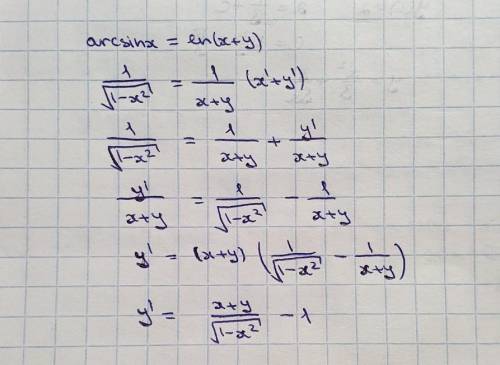 arcsinx = ln(x+y)
1/√(1-x²) = 1/(x+y) (x'+y')
1/√(1-x²) = 1/(x+y) + y'/(x+y)
y'/(x+y) = 1/√(1-x²) - 1/(x+y)
y' = (x+y) (1/√(1-x²) - 1/(x+y))
y' = (x+y)/√(1-x²) - 1